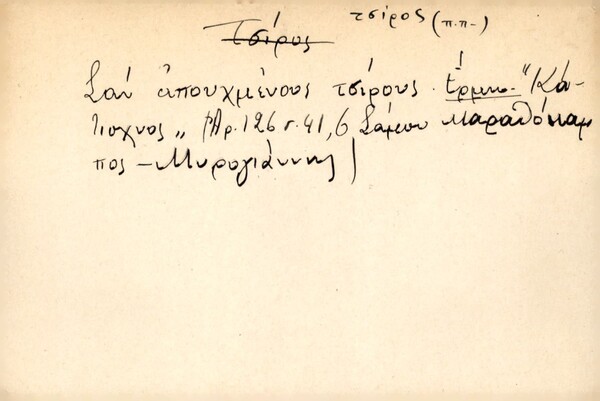 τσίρος (π.π.)
Τσίρος
Σαν ἀπουχμένους τσίρους. Ἑρμην. "Κά-
τισχνος„ (Ἀρ. 126 σ. 41, 6 Σάμου Μαραθόκαμ
πος – Μυρογιάννης)